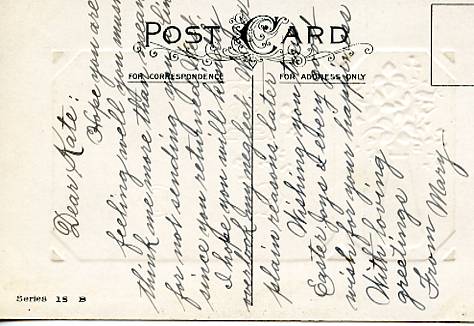 POST CARD
FOR CORRESPONDENCE
FOR ADDRESS ONLY
Dear Kate:
Hope you are
feeling well you must
think me more than mean
for not sending you
since you returned but
I hope you will
overlook my neglect.
plain reasons later
Wishing you
Easter Joys & every
wish for your happiness
With loving
greetings
From Mary.
Series 15 B